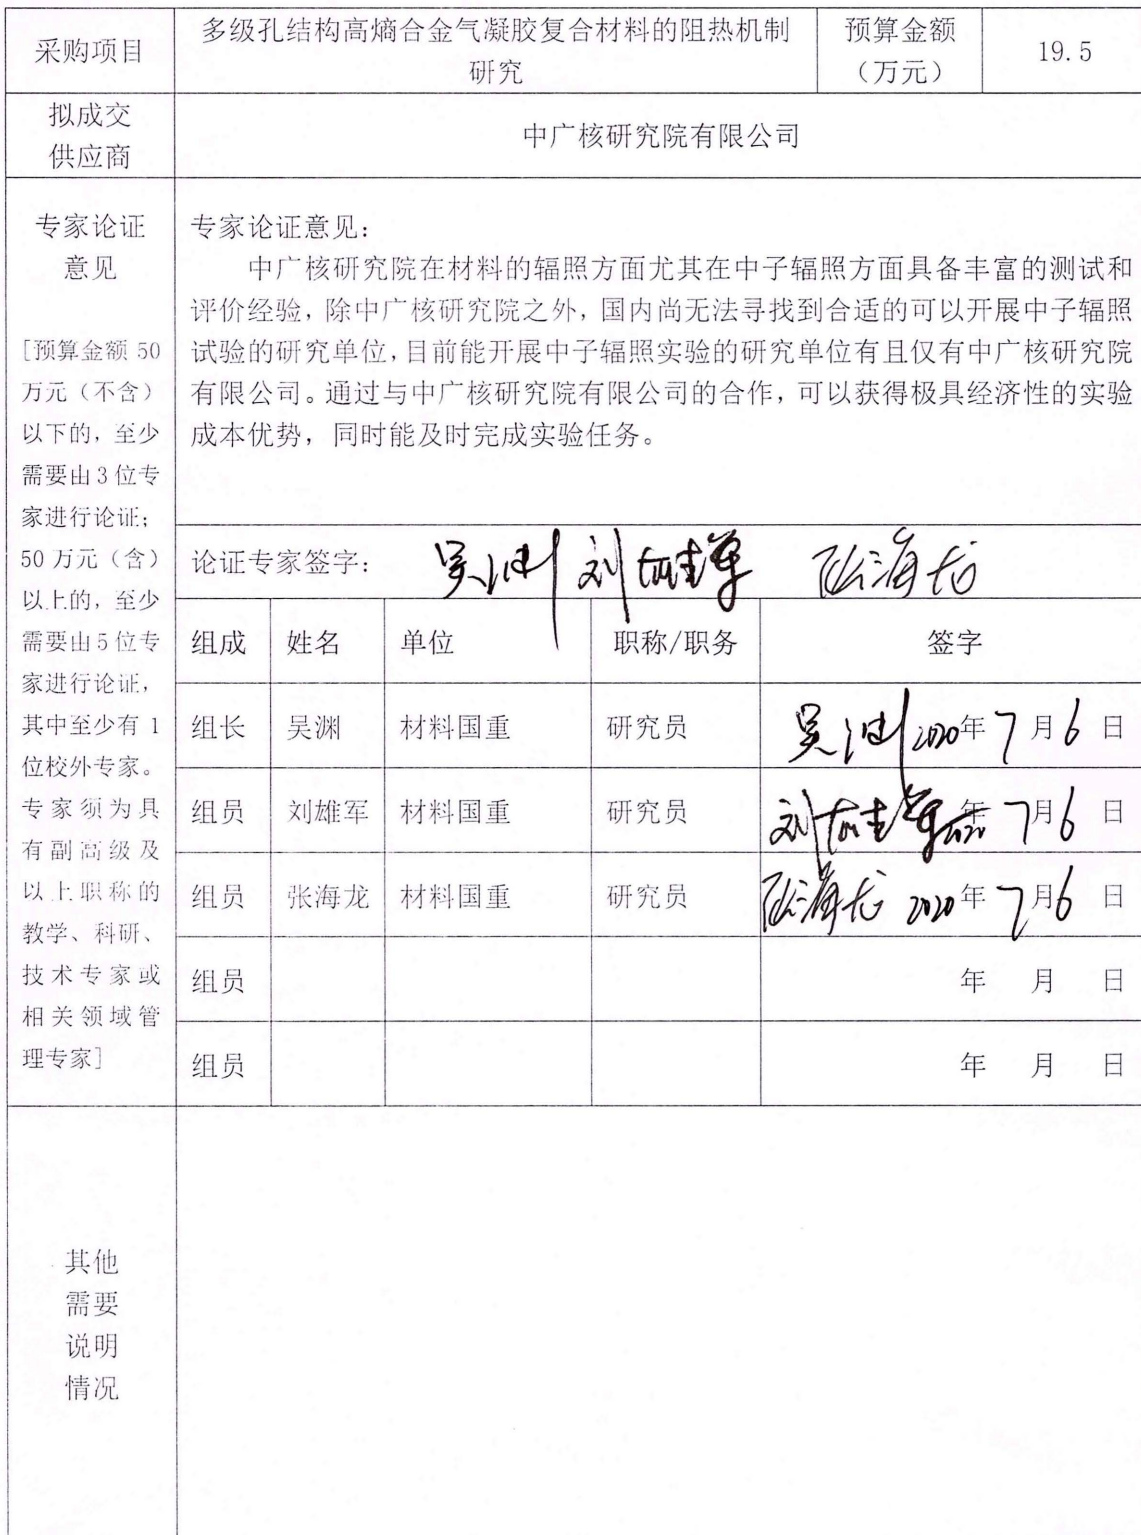 采购项目 多级孔结构高熵合金气凝胶复合材料的阻热机制 预算金额 19.5
研究 （万元）
拟成交
供应商
中广核研究院有限公司
专家论证
意见
[预算金额 50
万元（不含）
以下的，至少
需要由3位专
家进行论证；
50万元（含）
以上的，至少
需要由5位专
家进行论证，
其中至少有 1
位校外专家。
专家须为具
有副高级及
以上职称的
教学、科研、
技术专家或
相关领域管
理专家]
专家论证意见：
中广核研究院在材料的辐照方面尤其在中子辐照方面具备丰富的测试和
评价经验，除中广核研究院之外，国内尚无法寻找到合适的可以开展中子辐照
试验的研究单位，目前能开展中子辐照实验的研究单位有且仅有中广核研究院
有限公司。通过与中广核研究院有限公司的合作，可以获得极具经济性的实验
成本优势，同时能及时完成实验任务。
论证专家签字： 吴渊 刘雄军 张海龙
组成 姓名 单位 职称/职务 签字
组长 吴渊 材料国重 研究员 吴渊 2020年7月6日
组员 刘雄军 材料国重 研究员 刘雄军 2020年7月6日
组员 张海龙 材料国重 研究员 张海龙 2020年7月6日
组员 年 月 日
组员 年 月 日
其他
需要
说明
情况